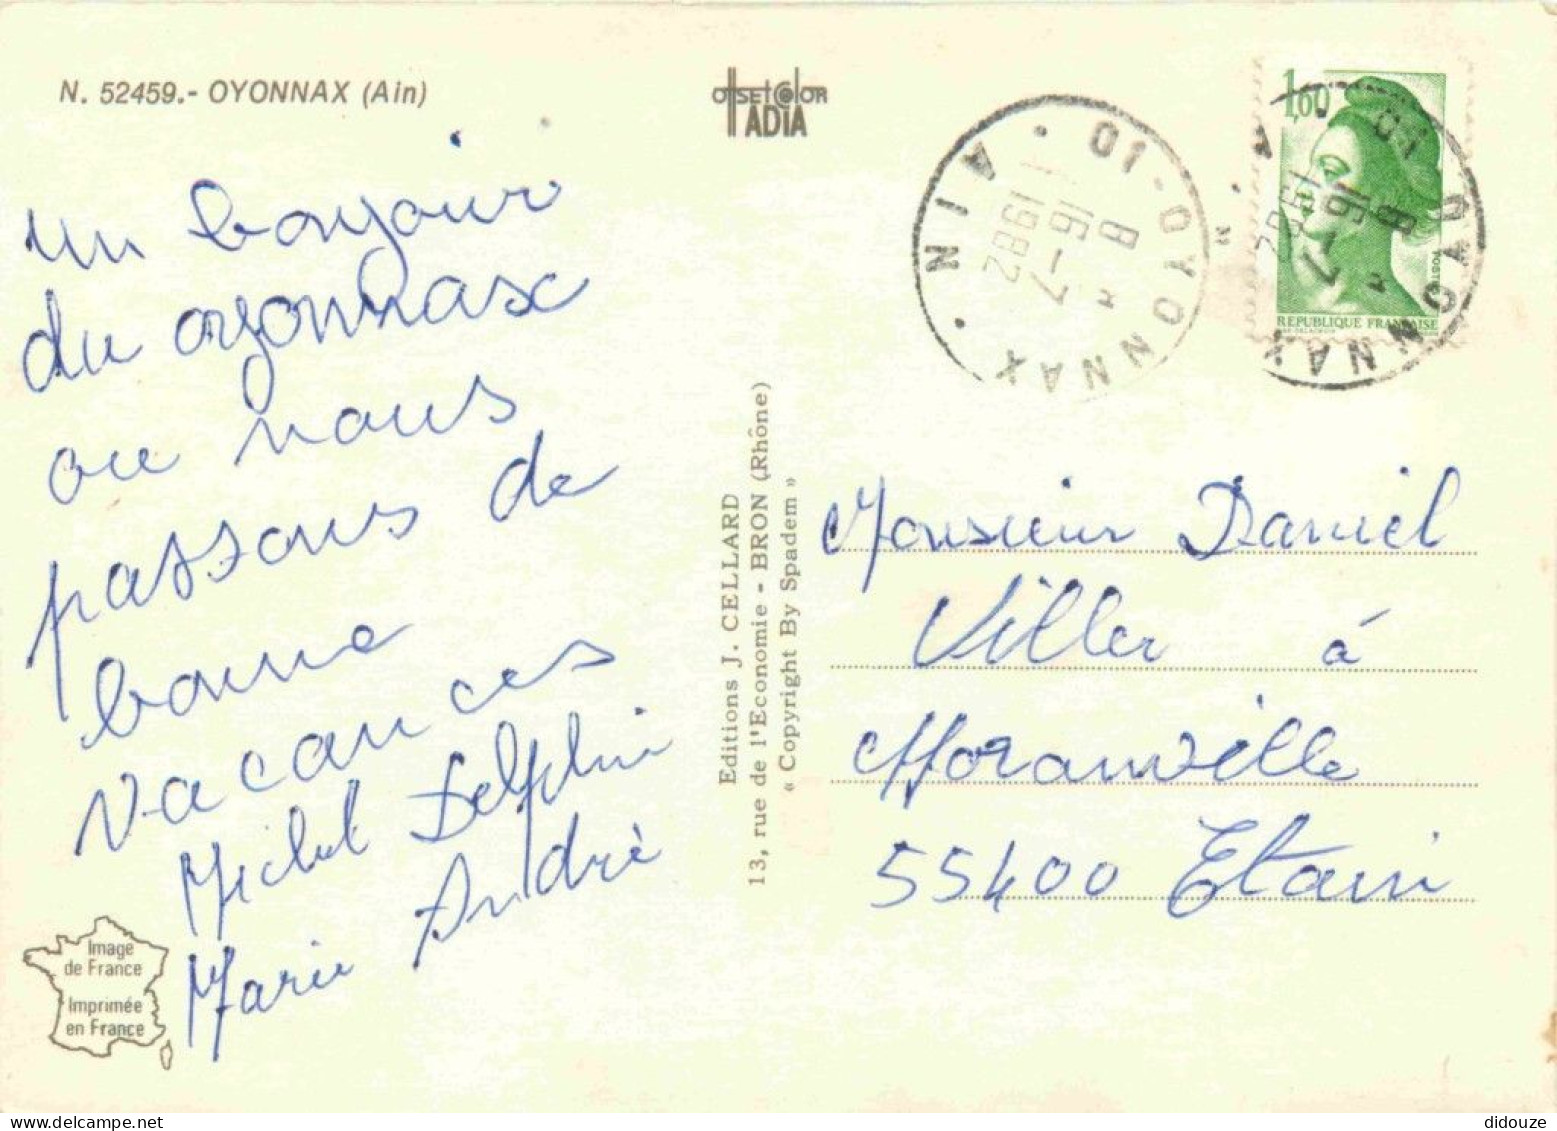 N. 52459.- OYONNAX (Ain)
un bonjour
du oyonnax
ou nous
passons de
bonne
vacances
Michel Delphin
Marie André
Image
de France
Imprimée
en France
OffsetColor
IADIA
Editions J. CELLARD
13, rue de l'Economie - BRON (Rhône)
« Copyright By Spadem »
01 - OYONNAX
AIN
B
16-7
1982
1,60
POSTES
REPUBLIQUE FRANÇAISE
01 OYONNAX
B
16-7
1982
Monsieur Daniel
Viller à
Moranville
55400 Etain
didouze